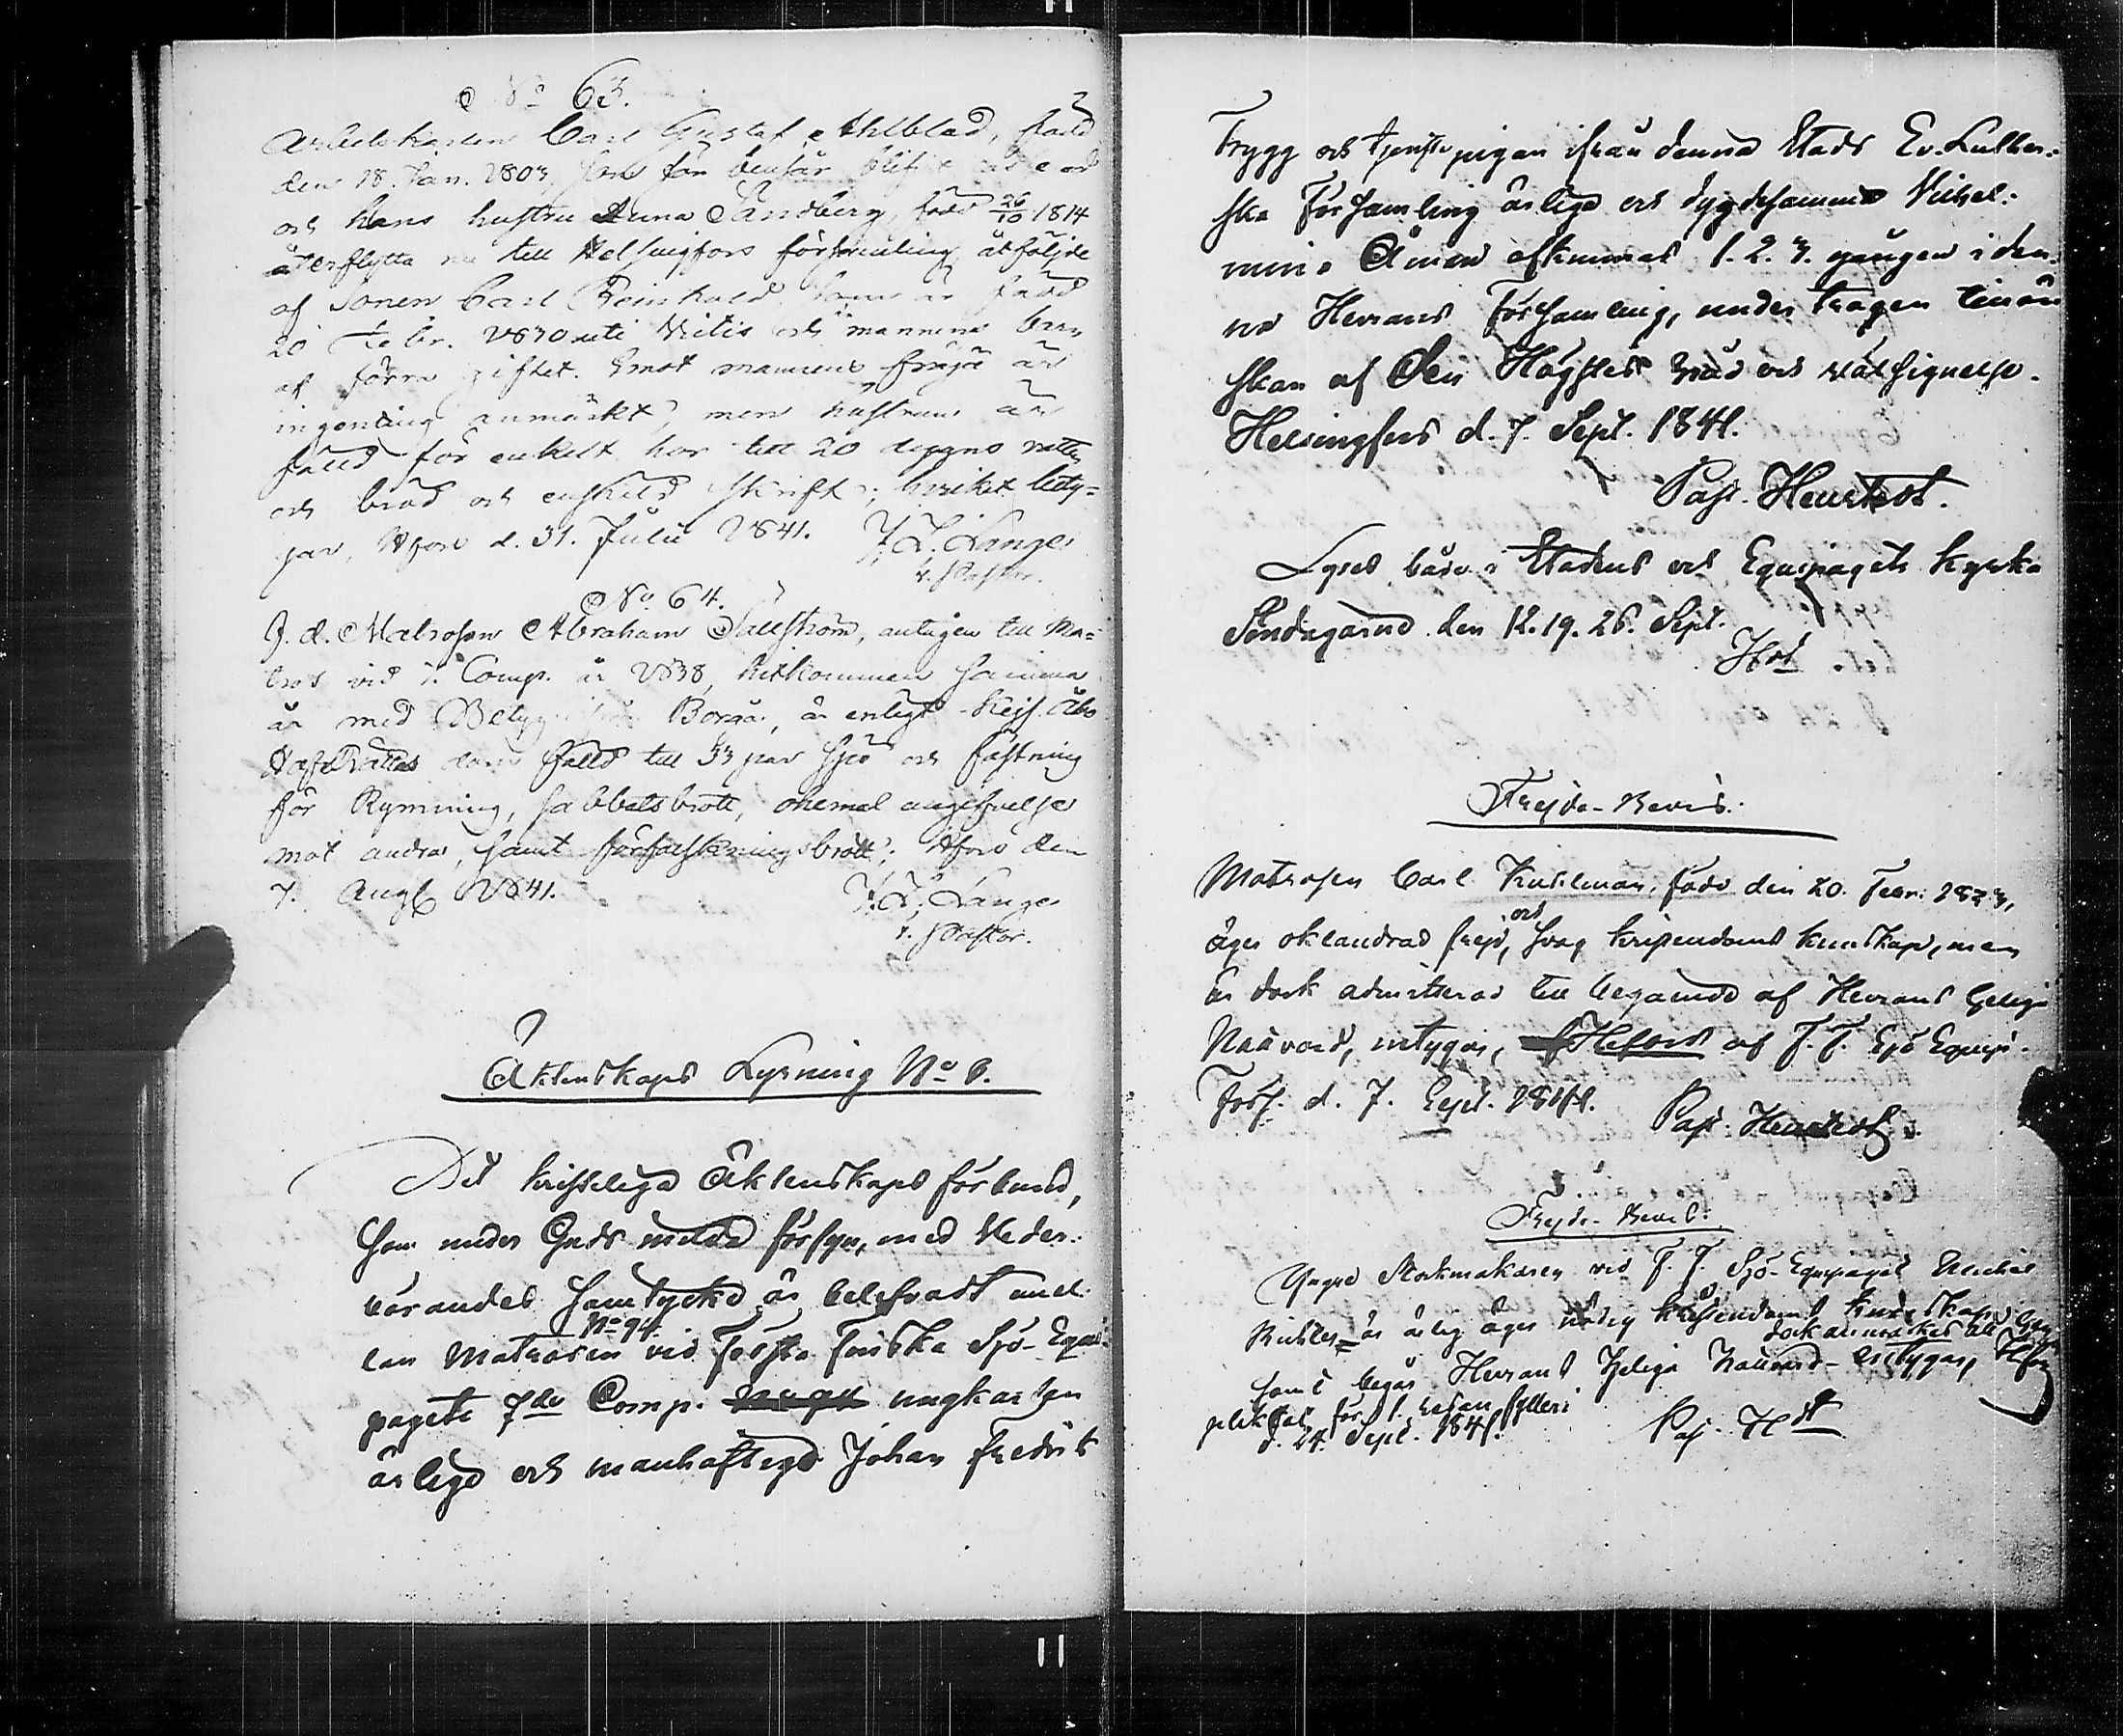 No 63.
Arbetskarlen Carl Gustaf Ahlblad, född
den 18. Jan. 1803, som för benfår blifvit
och hans hustru Anna Sandberg, född 26/10 1814
återflytta nu till Helsingfors församling, åtföljde
af Sonen Carl Reinhold som är född
20 Febr. 1830 uti Kitis och mannens barn
af förra giftet. Emot mannens frejd är
ingenting anmärkt, men hustrun är
fälld för enkelt hor till 20 dygns vatten
och bröd och enskild skrift; hvilket bety-
gar, Hfors d. 31. Julii 1841. J. L. Lange
v. Pastor.
No 64.
F. d. Matrosen Abraham Sallström, antagen till Ma-
tros vid 7. Comp. år 1838, hitkommen samma
år med Betyg Borgå, är enligt Kejs. Åbo
HofRätts dom fälld till 33 par spö och fästning
för Rymning, sabbatsbrott, angifvelse
mot andra, samt förfalskningsbrott; Hfors den
7. Aug. 1841. J. L. Lange
v. Pastor.
Äktenskaps Lysning No 8.
Det kristeliga Äktenskaps förbund,
som under Guds milda försyn, med Veder-
börandes samtycke är belefvadt mel-
No 94.
lan Matrosen vid Första Finska Sjö-Equi-
pagets 7de Comp. ungkarlen
ärlige och manhaftige Johan Fredrik
Trygg och tjenstepigan ifrån denna Stads Ev. Luther-
ska Församling ärliga och dygdesamma Vilhel-
mina Åman afkunnas 1. 2. 3. gången i den-
na Herrans Församling, under trägen tillön-
skan af Den Högstes nåd och välsignelse.
Helsingfors d. 7. Sept. 1841.
Past. Henstedt.
Lyses både i Stadens och Equipagets kyrka
Söndagarna den 12. 19. 26. Sept.
Hdt
Frejde-Bevis.
Matrosen Carl Kuhlman, född den 20. Febr. 1823,
och
äger oklandrad frejd, svag kristendoms kunskap, men
är dock admitterad till begående af Herrans Heliga
Nattvard, intygar, Helfors af F. F. Sjö Equip.
Förs. d. 7. Sept. 1841. Past. Henstedt.
Frejde-Bevis.
Yngre Stockmakaren vid F. F. Sjö-Equipaget Michel
Richter är ärlig äger nödig kristendoms kunskap
dock anmärkes att
samt begår Herrans Heliga Nattvard - intygar, Hfors
pliktat för 1. resan fylleri
d. 24. Sept. 1841. Pas. Hdt